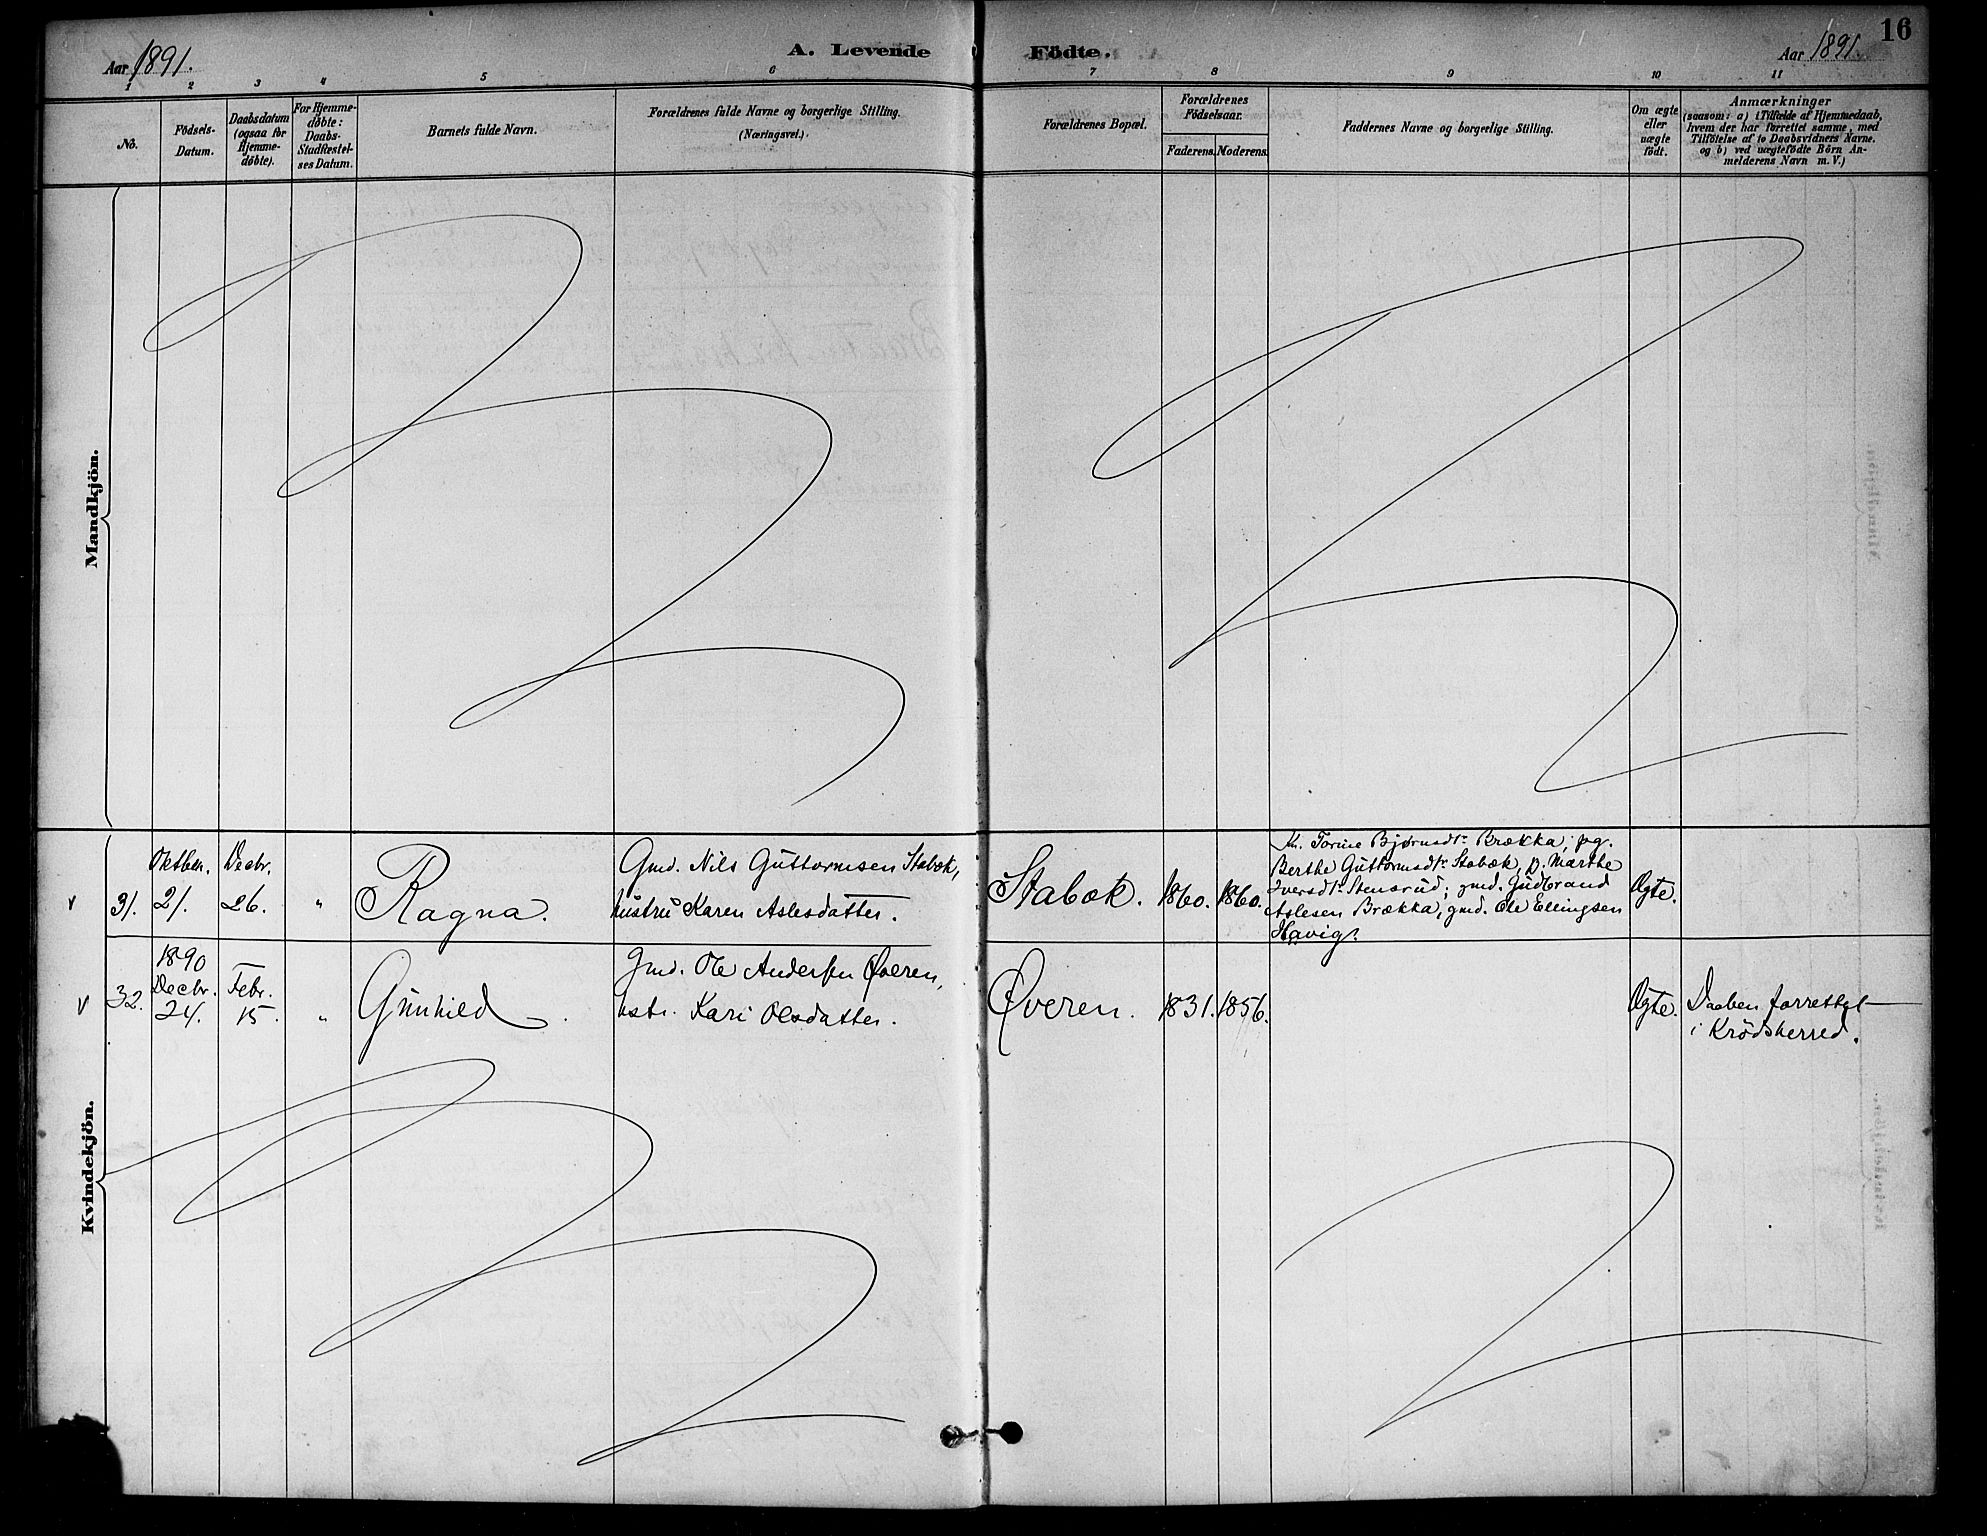 16
Aar 1891.
A. Levende Födte.
Aar 1891.
1 2 3 4 5 6 7 8 9 10 11
No.
Födsels-
Datum.
Daabsdatum
(ogsaa for
Hjemme-
døbte).
For Hjemme-
døbte:
Daabs-
Stadfæstel-
ses Datum.
Barnets fulde Navn.
Forældrenes fulde Navne og borgerlige Stilling.
(Næringsvei.)
Forældrenes Bopæl.
Forældrenes
Födselsaar.
Faderens. Moderens.
Faddernes Navne og borgerlige Stilling.
Om ægte
eller
uægte
født.
Anmærkninger
(saasom: a) i Tilfælde af Hjemmedaab,
hvem der har forrettet samme, med
Tilföielse af to Daabsvidners Navne.
og b) ved uægtefödte Börn An-
melderens Navn m. V.)
Mandkjön.
Kvindekjön.
v 31.
Oktbr.
21.
Decbr.
26.
"
Ragna.
Gmd. Nils Guttormsen Stabæk,
hustru Karen Aslesdatter.
Stabæk.
1860. 1860.
Kn. Torine Bjørnsdtr Brækka, pg.
Berthe Guttormsdtr Stabæk, p. Marthe
Iversdtr Stensrud; gmd. Gudbrand
Aslesen Brækka, gmd. Ole Ellingsen
Havig.
Ægte.
v 32.
1890
Decbr.
24.
Febr.
15.
"
Gunhild
Gmd. Ole Andersen Øveren,
hstr. Kari Olsdatter.
Øveren.
1831. 1856.
Ægte.
Daaben forrettet
i Krødsherred.